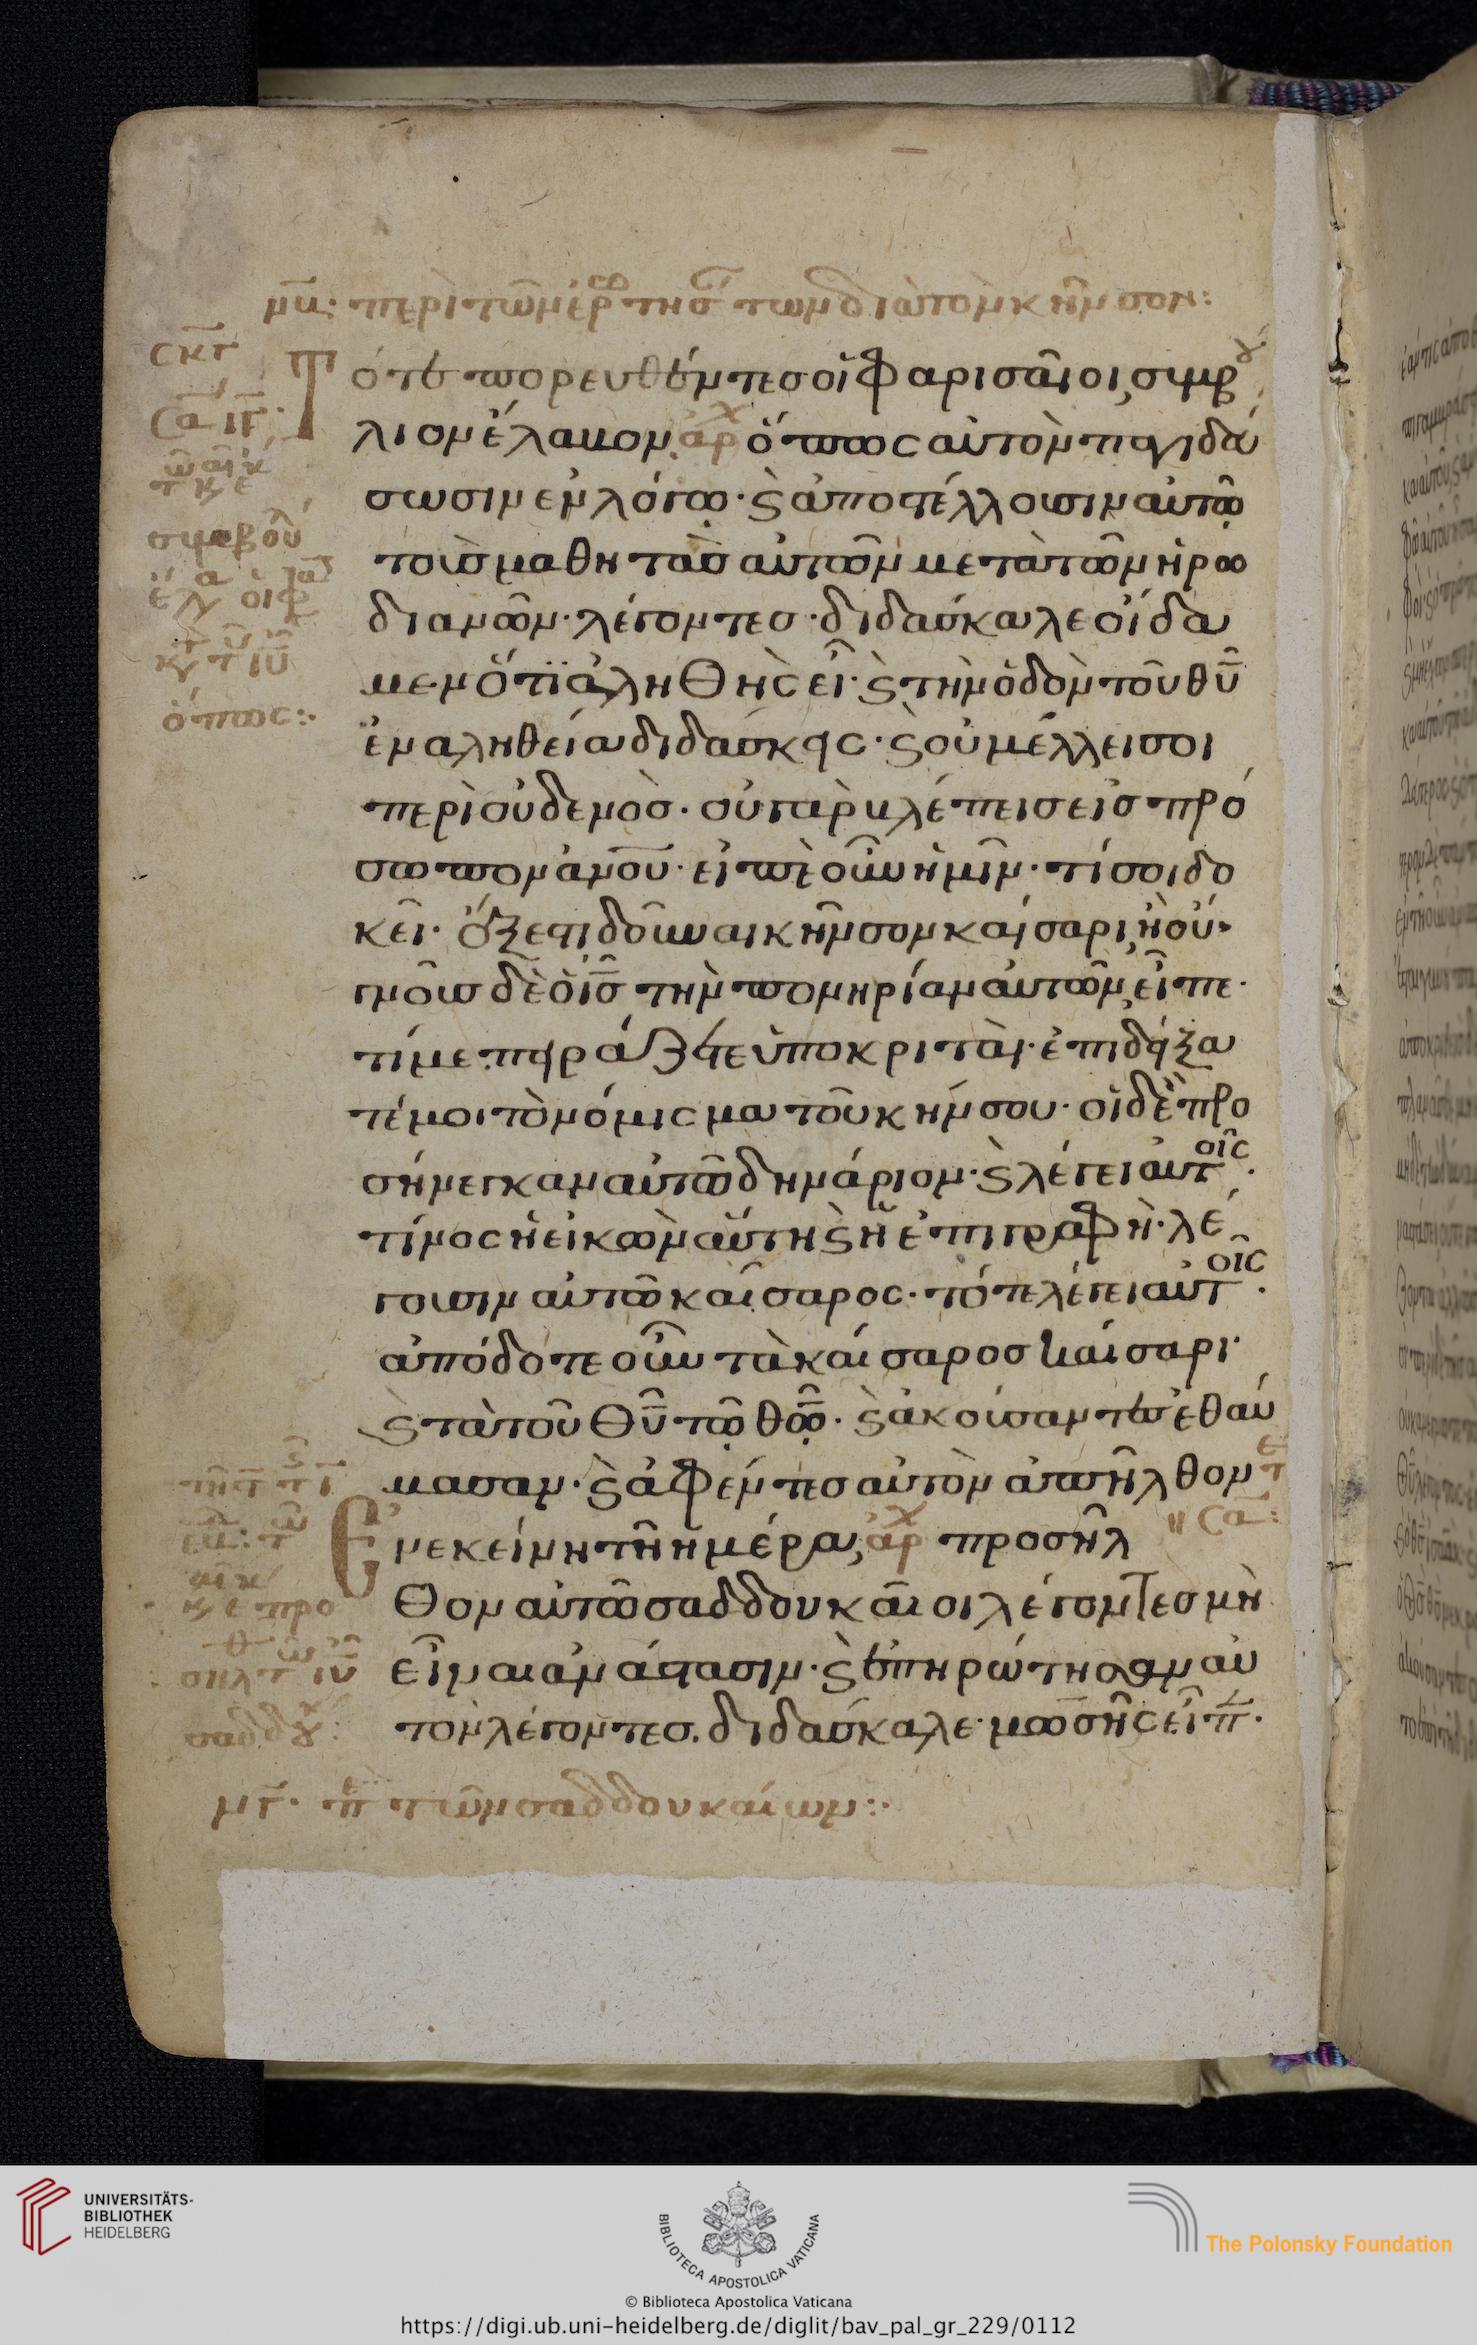 μβ· περὶ τῶν ἐρωτησάντων διὰ τὸν κῆνσον:
σκγ
Τότε πορευθέντες οἱ φαρισαῖοι, συμβου
λιον ἔλαβον ἀρχ ὅπως αὐτὸν παγιδεύ
σωσιν ἐν λόγῳ· ϗ ἀποστέλλουσιν αὐτῷ
τοὺς μαθητὰς αὐτῶν μετὰ τῶν ἡρω
διανῶν· λέγοντες· διδάσκαλε οἴδα
μεν ὅτι ἀληθὴς εἶ· ϗ τὴν ὁδὸν τοῦ θῦ
ἐν αληθεία διδάσκεις· ϗ οὐ μέλλει σοι
περὶ οὐδενὸς· οὐ γαρ βλέπεις εἰς πρό
σωπον ἀνου· εἰπὲ οὖν ἡμῖν· τί σοι δο
κεῖ· ἔξεστι δοῦναι κῆνσον καίσαρι, ἢ οὔ·
γνοῦς δὲ ὁ ις τὴν πονηρίαν αὐτῶν, εἶπε·
τί με πειράζετε ὑποκριταὶ· ἐπιδείξα
τέ μοι τὸ νόμισμα τοῦ κήνσου· οἱ δὲ προ
σήνεγκαν αὐτῶ δηνάριον· ϗ λέγει αὐτοῖς·
τίνος ἡ εἰκὼν αὕτη ϗ ἡ ἐπιγραφὴ· λέ
γουσιν αὐτῶ καίσαρος· τότε λέγει αὐτοῖς·
ἀπόδοτε οὖν τὰ καίσαρος καίσαρι·
ϗ τὰ τοῦ θῦ τῷ θῷ· ϗ ἀκούσαντες ἐθαύ
μασαν· ϗ ἀφέντες αὐτὸν ἀπῆλθον τε
Ἐν εκείνη τῆ ἡμέρα, ἀρχ προσῆλ
θον αὐτῶ σαδδουκαῖοι λέγοντες μὴ
εἶναι ἀνάστασιν· ϗ ἐπηρώτησαν αὐ
τὸν λέγοντες· διδάσκαλε· μωσῆς εἶπ·
ὅπως:·
μγ· πε τῶν σαδδουκαίων:·
UNIVERSITÄTS-
BIBLIOTHEK
HEIDELBERG
BIBLIOTECA APOSTOLICA VATICANA
The Polonsky Foundation
© Biblioteca Apostolica Vaticana
https://digi.ub.uni-heidelberg.de/diglit/bav_pal_gr_229/0112